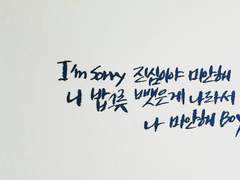 I'm sorry 진심이야 미안해
니 밥그릇 뺏은게 나라서
나 미안해 Boy